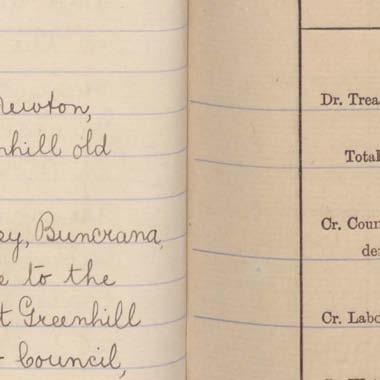 Newton,
nhill old
ey, Buncrana,
e to the
t Greenhill
Council,
Dr. Trea
Total
Cr. Coun
de
Cr. Labo